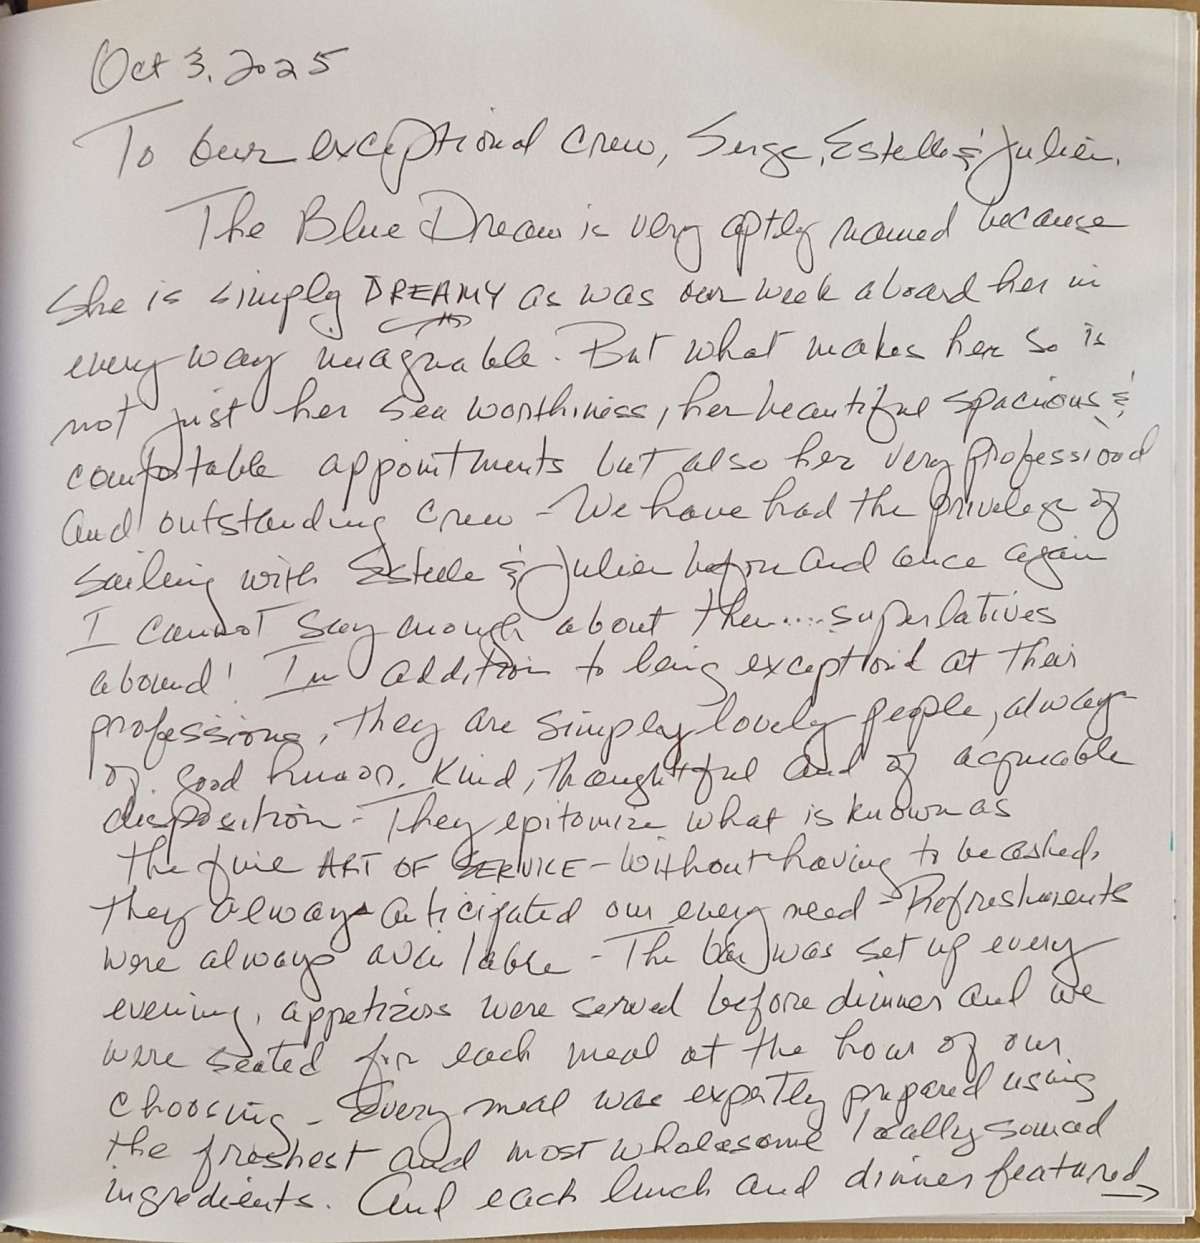 Oct 3, 2025
To our exceptional crew, Serge, Estelle & Julien,
The Blue Dream is very aptly named because
she is simply DREAMY as was our week aboard her in
every way imaginable. But what makes her so is
not just her sea worthiness, her beautiful spacious &
comfortable appointments but also her very professional
and outstanding crew - We have had the privelege of
sailing with Estelle & Julien before and once again
I cannot say enough about them.... superlatives
abound! In addition to being exceptional at their
professions, they are simply lovely people, always
of good humor, kind, thoughtful and of agreeable
disposition - They epitomize what is known as
the fine ART OF SERVICE - without having to be asked,
they always anticipated our every need - Refreshments
were always available - The bar was set up every
evening, appetizers were served before dinner and we
were seated for each meal at the hour of our
choosing - Every meal was expertly prepared using
the freshest and most wholesome locally sourced
ingredients. And each lunch and dinner featured →